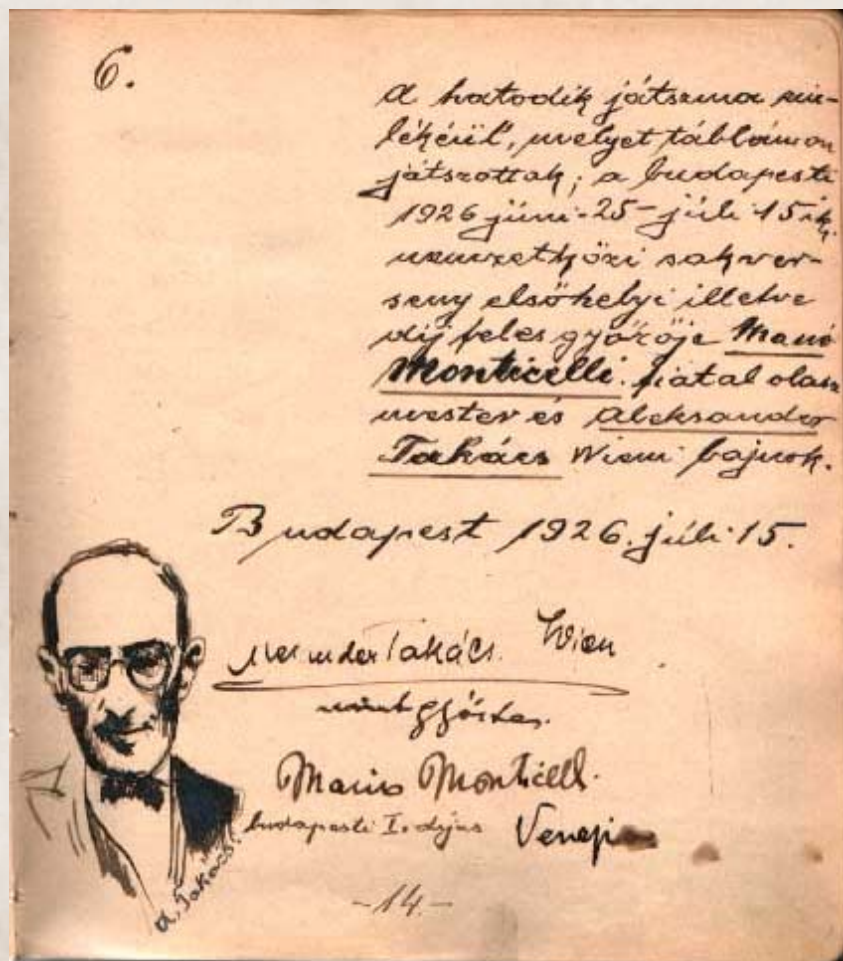 6.
A hatodik játszma em-
lékéül, melyet táblámon
játszottak; a budapesti
1926 júni-25-júli 15iki
nemzetközi sakver-
seny elsőhelyi illetve
díj feles győzője Manó
Monticelli. fiatal olasz
mester és Aleksander
Takács Wieni bajnok.
Budapest 1926. júli. 15.
Takács. Wien
mint győztes.
Mario Monticelli.
budapesti I. díjas
A. Takács.
-14.-